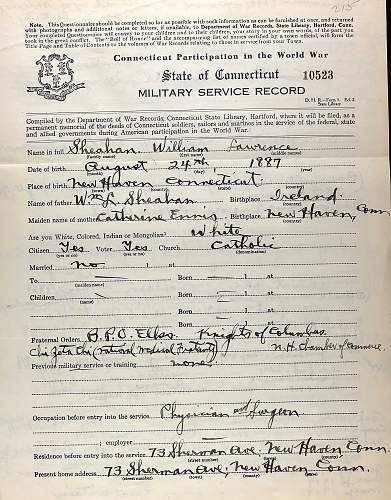 215
Note. This Questionnaire should be completed so far as possible with such information as can be furnished at once, and returned
with photographs and additional notes or letters, if available, to Department of War Records, State Library, Hartford, Conn.
Your completed Questionnaire will convey to your children and to their children, your story in your own words, of the part you
took in the great conflict. The "Roll of Honor" and the accompanying list of towns certified by a town official, will form the
Title-Page and Table of Contents to the volumes of War Records relating to those in service from your Town.
Connecticut Participation in the World War
State of Connecticut 10523
MILITARY SERVICE RECORD
D. W. R.—Form 1. Ed. 2
State Library
Compiled by the Department of War Records, Connecticut State Library, Hartford, where it will be filed, as a
permanent memorial of the deeds of Connecticut soldiers, sailors and marines in the service of the federal, state
and allied governments during American participation in the World War.
Name in full Sheahan William Lawrence
(Family name) (First name) (middle name)
Date of birth August 24th, 1887
(month) (day) (year)
Place of birth New Haven Connecticut
(town) (county) (state) (country)
Name of father Wm L Sheahan Birthplace Ireland
(country)
Maiden name of mother Catherine Ennis Birthplace New Haven, Conn
(country)
Are you White, Colored, Indian or Mongolian? White
Citizen Yes Voter Yes Church Catholic
(yes or no) (yes or no) (denomination)
Married no 1 at
(yes or no)
To Born at
(maiden name)
Children Born at
(name)
Born at
Born at
Fraternal Orders B.P.O. Elks. Knights of Columbus
Chi Zeta Chi (National Medical Fraternity) N.H. Chamber of Commerce
Previous military service or training none
Occupation before entry into the service Physician and Surgeon
; employer
Residence before entry into the service 73 Sherman Ave. New Haven Conn.
(street number) (town) (county) (state)
Present home address 73 Sherman Ave; New Haven Conn.
(street number) (town) (county) (state)